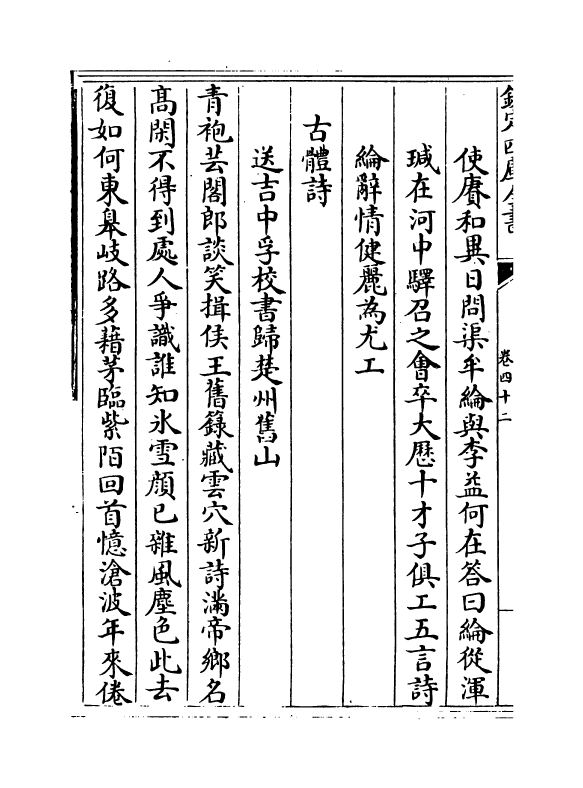 欽定四庫全書
卷四十二
使賡和異日問渠牟綸與李益何在答曰綸從渾
瑊在河中驛召之會卒大厯十才子俱工五言詩
綸辭情健麗為尤工
古體詩
送吉中孚校書歸楚州舊山
青袍芸閣郎談笑揖侯王舊籙藏雲穴新詩滿帝鄉名
髙閑不得到處人爭識誰知氷雪顔已雜風塵色此去
復如何東臯岐路多藉茅臨紫陌回首憶滄波年來倦